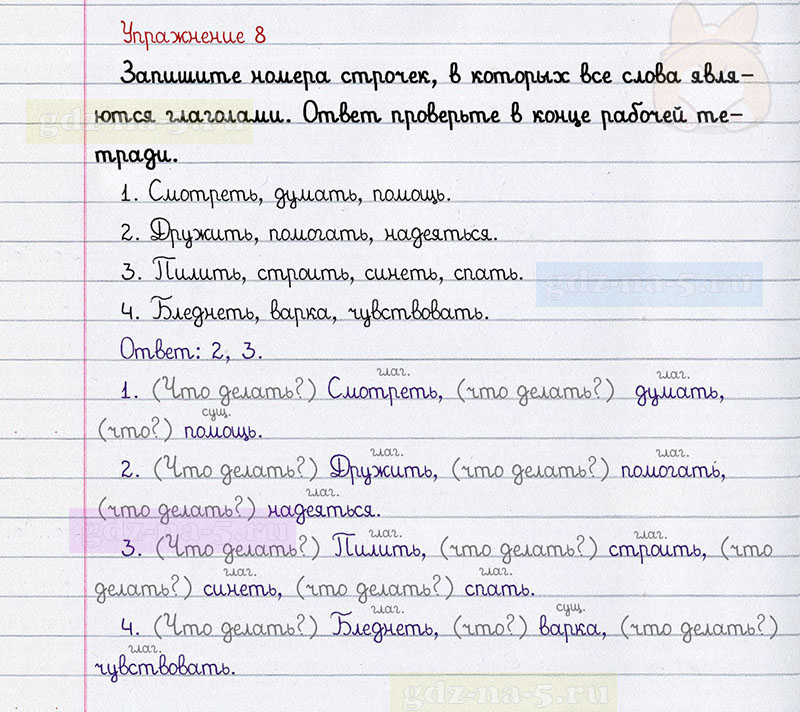 Упражнение 8
Запишите номера строчек, в которых все слова явля–
ются глаголами. Ответ проверьте в конце рабочей те–
тради.
gdz-na-5.ru
1. Смотреть, думать, помощь.
2. Дружить, помогать, надеяться.
3. Пилить, строить, синеть, спать.
gdz-na-5.ru
4. Бледнеть, варка, чувствовать.
Ответ: 2, 3.
глаг. глаг.
1. (Что делать?) Смотреть, (что делать?) думать,
сущ.
(что?) помощь.
глаг. глаг.
2. (Что делать?) Дружить, (что делать?) помогать,
глаг.
(что делать?) надеяться.
gdz-na-5.ru
глаг. глаг.
3. (Что делать?) Пилить, (что делать?) строить, (что
глаг. глаг.
делать?) синеть, (что делать?) спать.
глаг. сущ.
4. (Что делать?) Бледнеть, (что?) варка, (что делать?)
глаг.
чувствовать.
gdz-na-5.ru